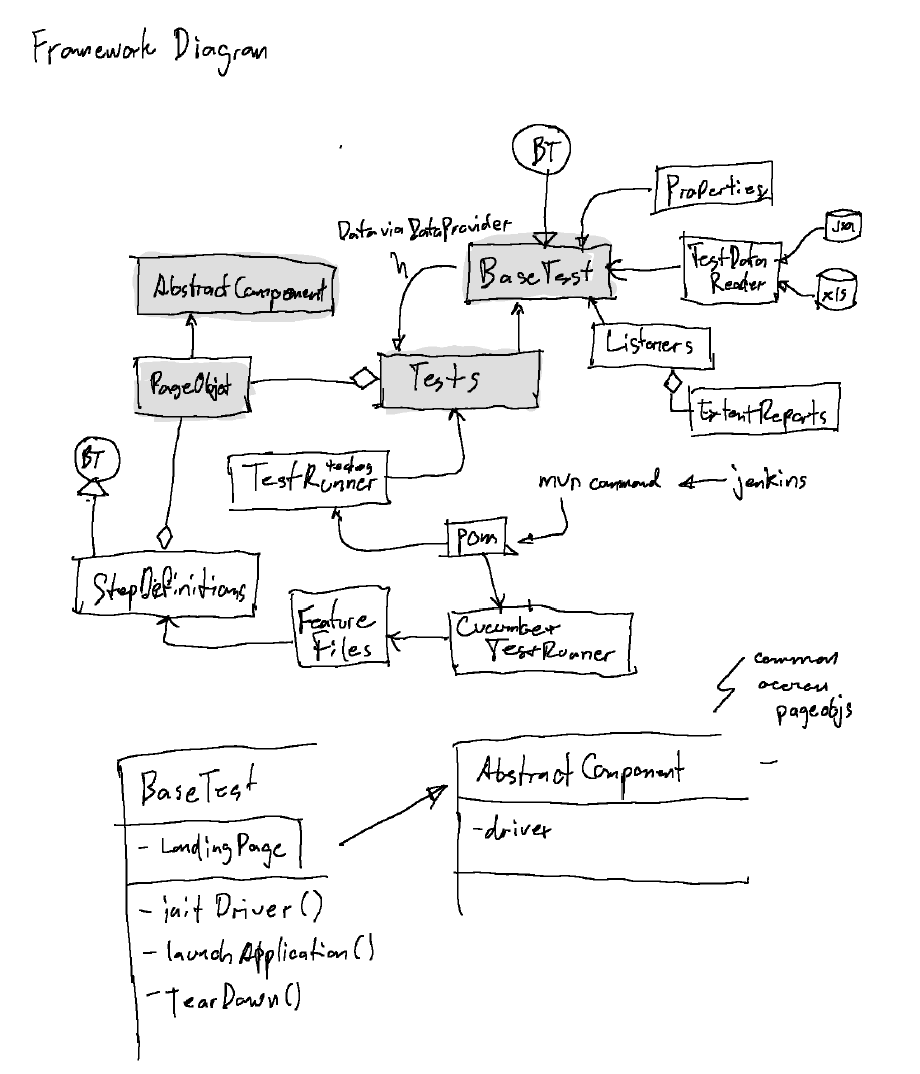 Framework Diagram
BT
Properties
Data via DataProvider
BaseTest
TestData
Reader
json
xls
AbstractComponent
Listeners
PageObjet
Tests
ExtentReports
BT
testng
TestRunner
mvn command
jenkins
POM
StepDefinitions
Feature
Files
Cucumber
TestRunner
common
across
pageobjs
BaseTest
- LandingPage
- init Driver()
- launchApplication()
- TearDown()
AbstractComponent
-driver